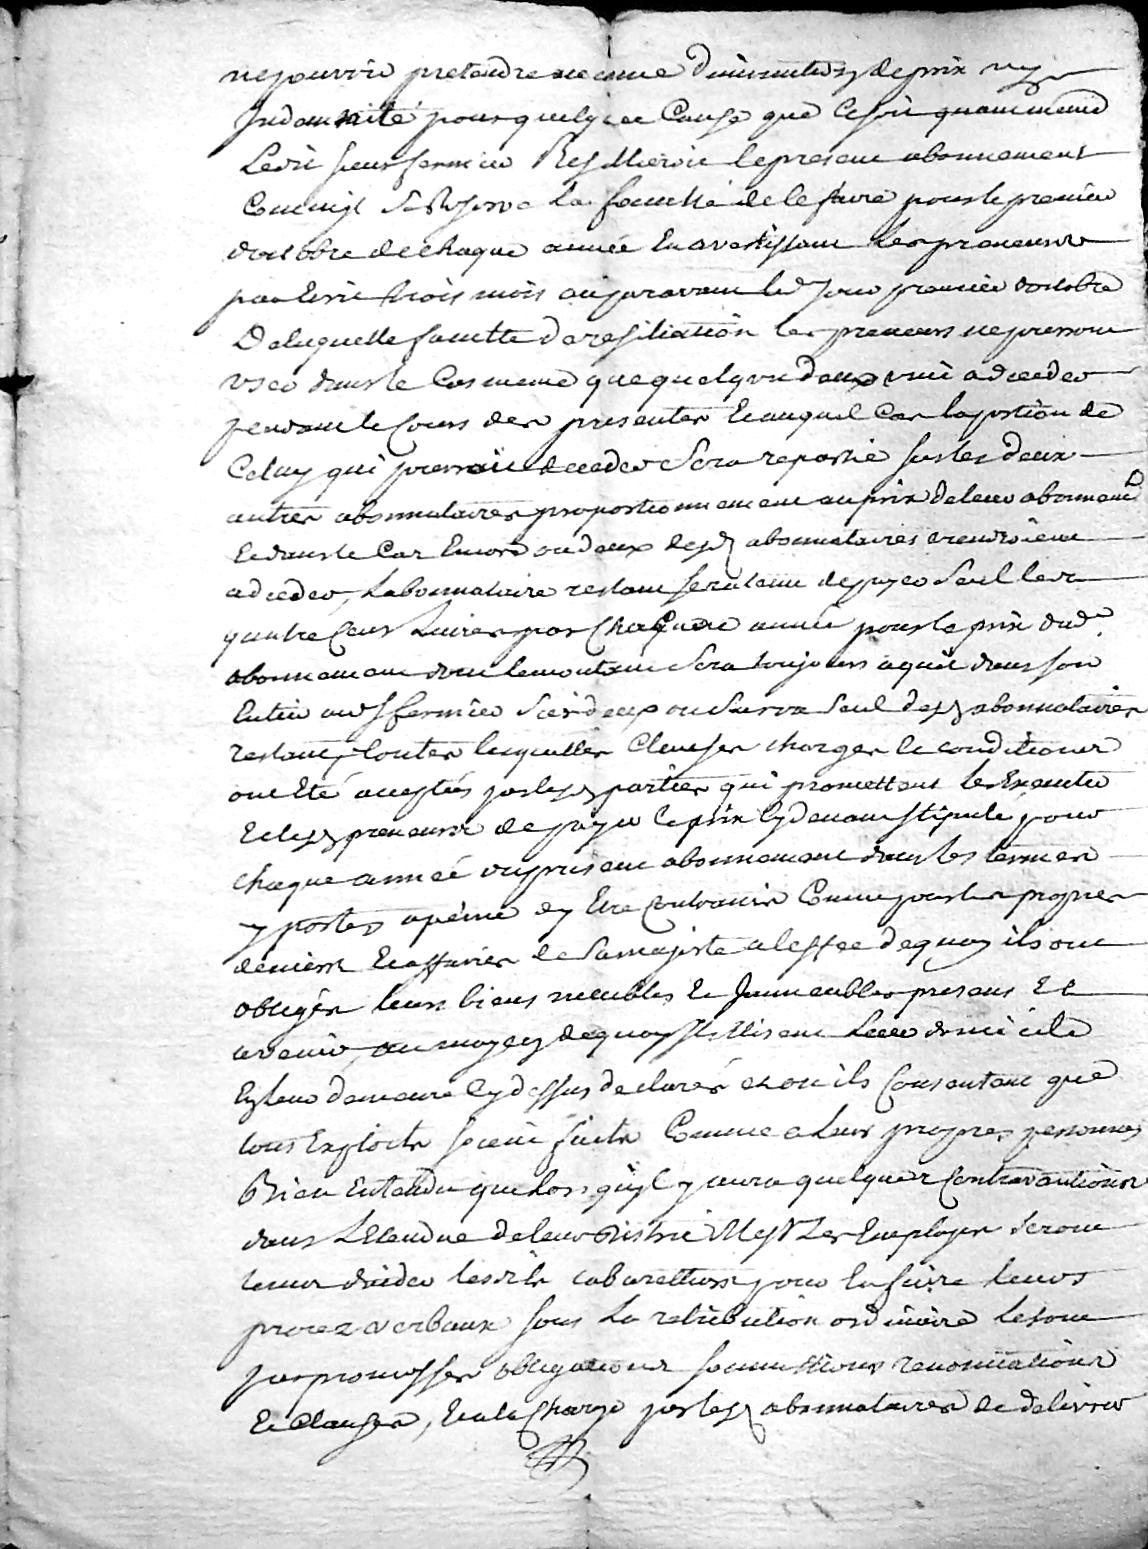 ne pouvoir pretendre aucune diminution de prix ny
Indamnité pour quelque Cause que ce soit quant meme
Ledit sieur fermier Resilieroit le present abonnement
Comme il se Reserve la faculté de le faire pour le premier
doctobre de chaque année En avertissant les preneurs
par Ecrit trois mois auparavant led Jour premier doctobre
De laquelle faculté de resiliation les preneurs ne pourront
user dans le Cas meme que quelqu'un deux vint a deceder
pendant le Cours des presentes Et auquel Cas la portion de
Celuy qui pourroit deceder Sera repartie sur les deux
autres abonnataires proportionnement au prix de leur abonnemt
Et dans le Cas Encore ou deux desd abonnataires viendroient
a deceder, Labonnataire restant sera tenu de payer Seul les
quatre Cent Livres par Chaquune année pour le prix dud
abonnement dont le montant Sera toujours aquit dans son
Entier aud S fermier Soit deux ou Sur un Seul desd abonnataires
restant, toutes lesquelles Clauses charges et conditions
ont Eté acceptées par lesd parties qui promettent les Executer
Et lesd preneurs de payer le prix Cy devant stipulé pour
chaque année du present abonnement dans les termes
y portés apeine dy Etre Contraints Comme pour les propres
deniers Et affaires de Sa majesté a leffet de quoy ils ont
obligés leurs biens meubles Et Immeubles presens Et
avenir, au moyen de quoy Elisent Leur domicile
En leur demeure Cy dessus declarés et ou ils Consentent que
tous Exploits soient faits Comme a Leurs propres personnes
Bien Entendu que Lors qu'il y aura quelques Contraventions
dans L'Etendue de leur District Mess Les Employés Seront
tenus daider lesdits cabarettiers pour En faire leurs
procez verbaux sous La retribution ordinaire le tout
par promesses obligations soumissions renonciations
Et Clauses, Et a la Charge par lesd abonnataires de delivrer